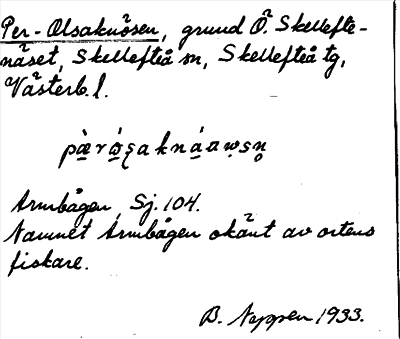 Per-Olsaknösen, grund Ö. Skellefte-
näset, Skellefteå sn, Skellefteå tg,
Västerb. l.
Armbågen, Sj. 104.
Namnet Armbågen okänt av ortens
fiskare.